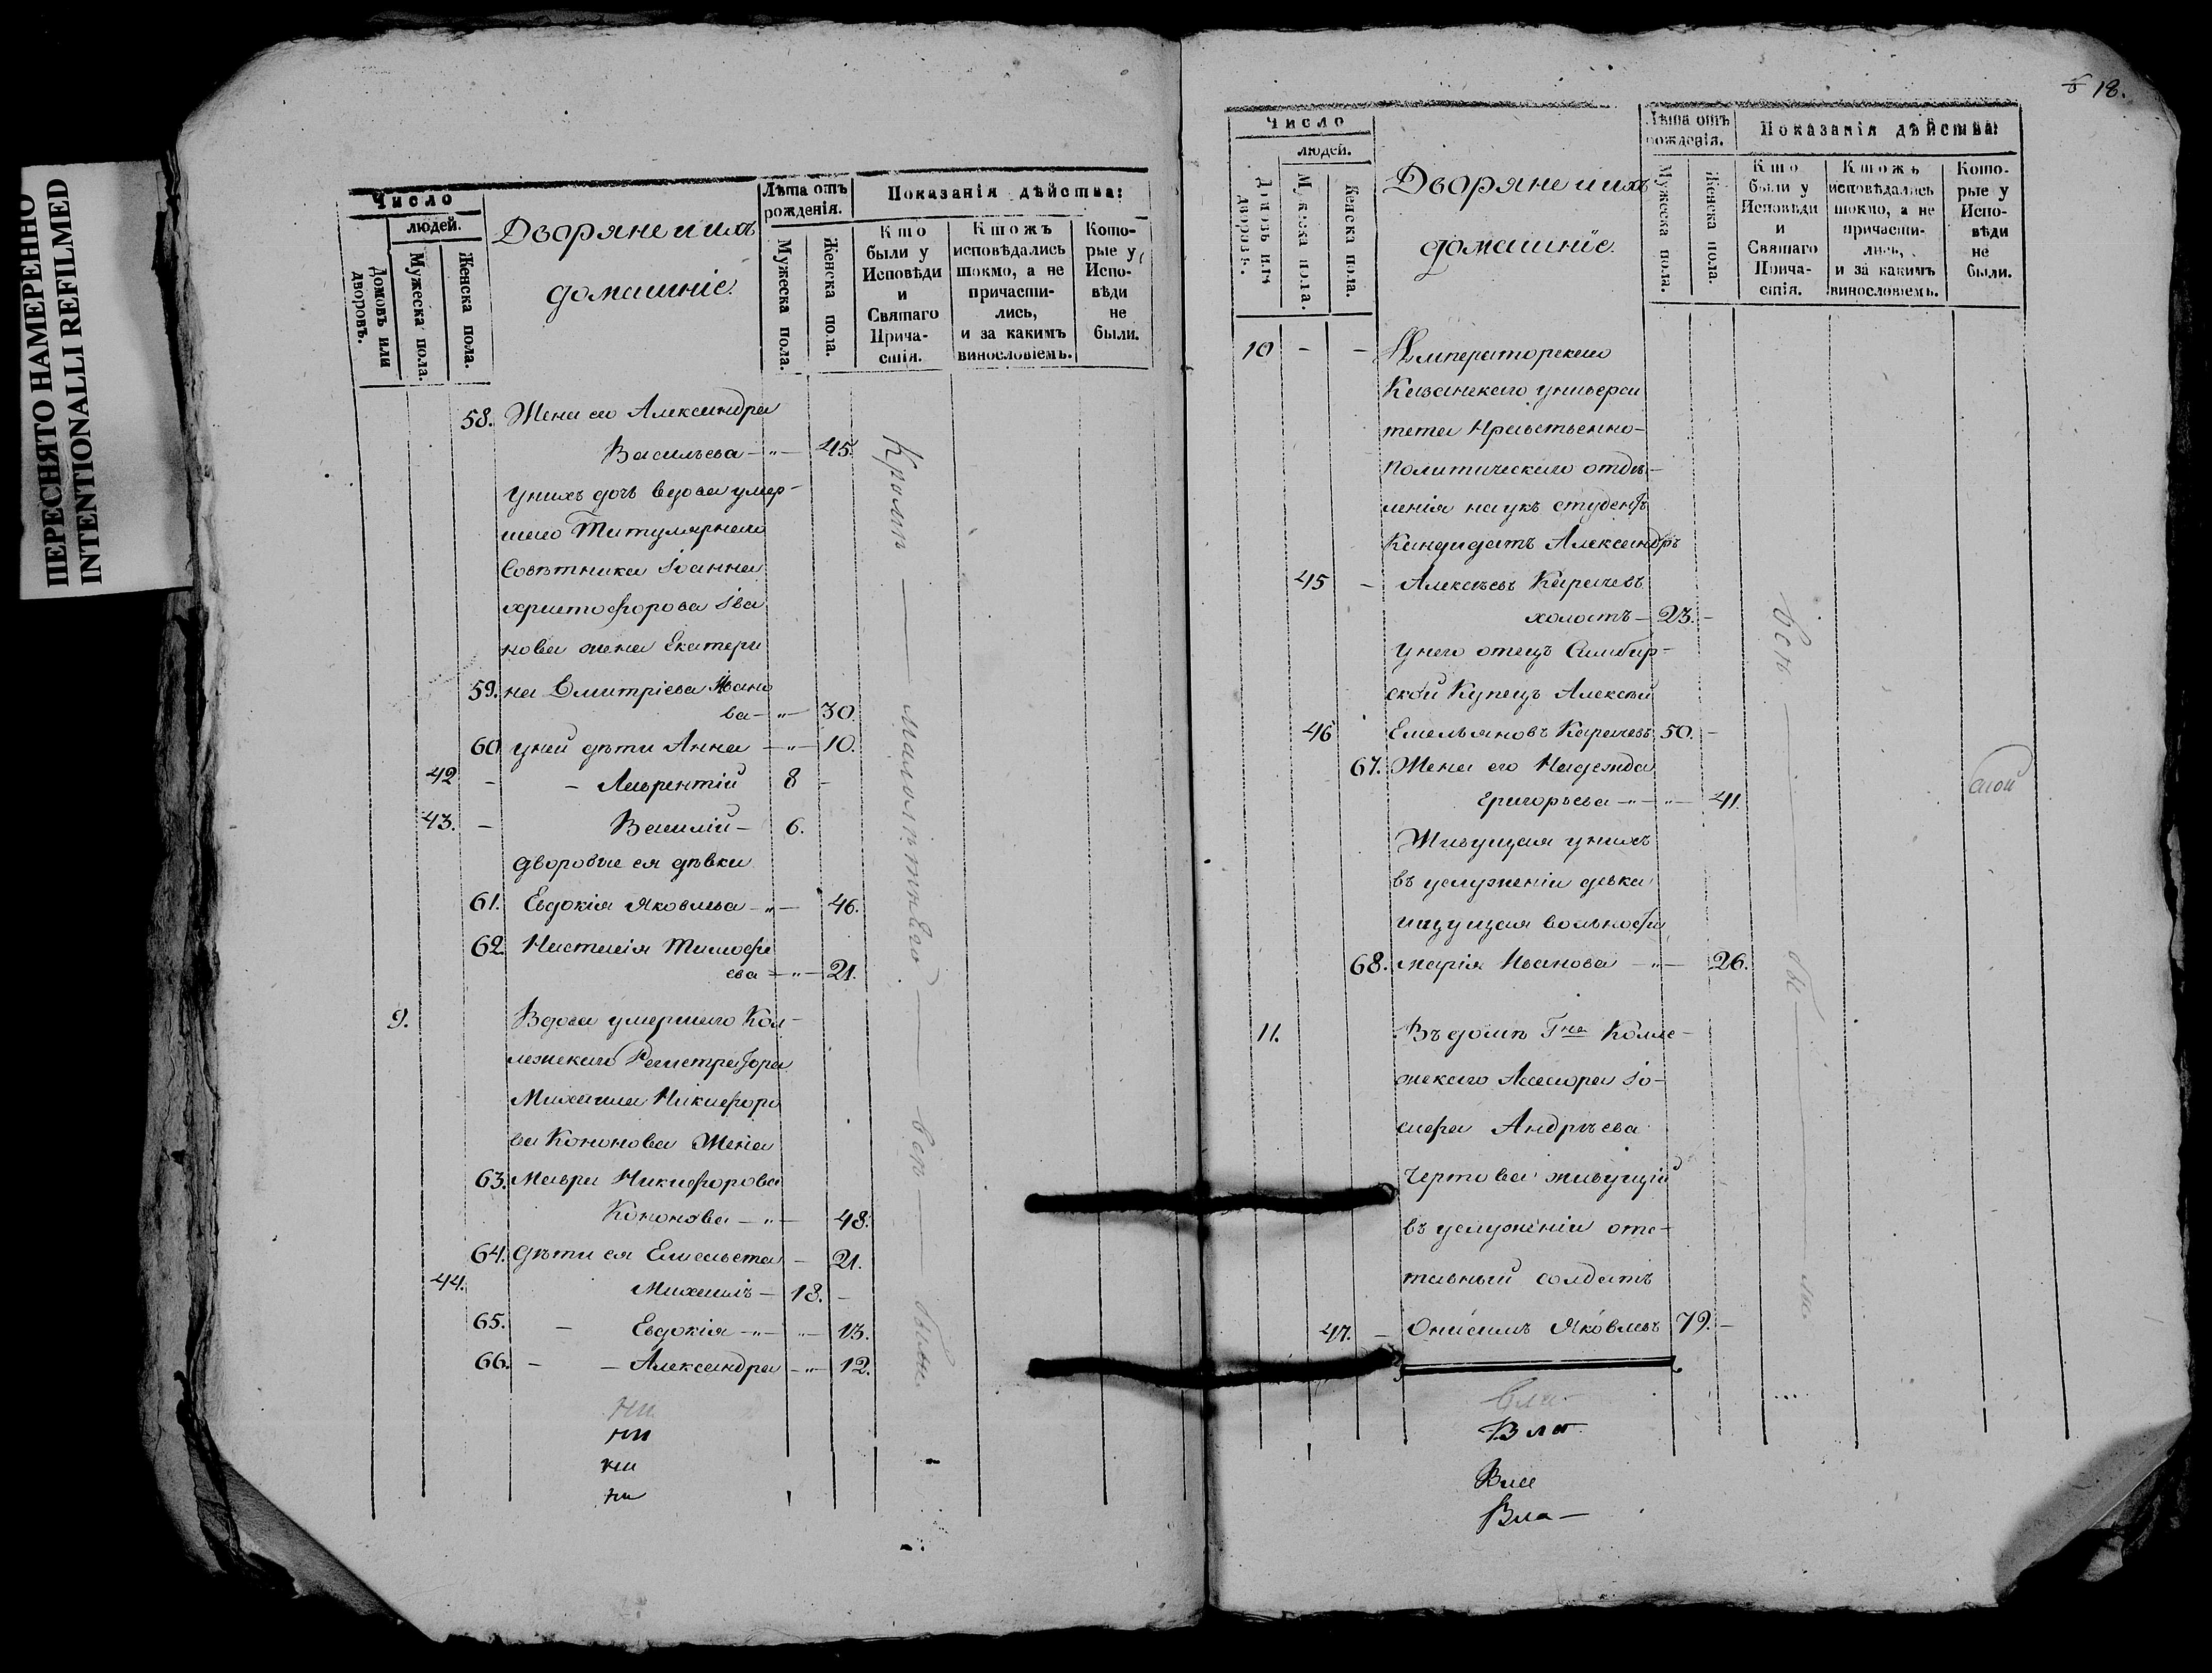 ПЕРЕСНЯТО НАМЕРЕННО
INTENTIONALLI REFILMED
Число
людей.
Домовъ или дворовъ.
Мужеска пола.
Женска пола.
Дворяне и ихъ
домашніе.
Лѣта отъ рожденія.
Мужеска пола.
Женска пола.
Показанія дѣйства:
Кто были у Исповѣди и Святаго Прича-стія.
Ктожъ исповѣдались токмо, а не причасти-лись, и за какимъ винословіемъ.
Кото-рые у Испо-вѣди не были.
58. Жена его Александра
Васильева - " - 45.
у нихъ дочь вдова умер-
шаго Титулярнаго
Совѣтника Іоанна
христофорова Ива
нова жена Екатери
59. на Дмитріева Ивано
ва - " - 30.
60 у ней дѣти Анна - " - 10.
42 - - Лаврентій 8 -
43. - Василій - 6.
дворовые ея дѣвки
61. Евдокія Яковлева - " - 46.
62. Настасія Тимофе
ева - " - 21.
9. Вдова умершаго Кол-
лежскаго Регистратора
Михаила Никифоро
ва Кононова Жена
63. Мавра Никифорова
Кононова - " - 48.
64. дѣти ея Елисавета - 21.
44. Михаилъ - 18. -
65. - Евдокія - " - " - 13.
66. - - Александра - " - 12.
Кромѣ малолѣтняго всѣ были.
ни
ни
ни
ни
18.
Число
людей.
Домовъ или дворовъ.
Мужеска пола.
Женска пола.
Дворяне и ихъ
домашніе.
Лѣта отъ рожденія.
Мужеска пола.
Женска пола.
Показанія дѣйства:
Кто были у Исповѣди и Святаго Прича-стія.
Ктожъ исповѣдались токмо, а не причасти-лись, и за какимъ винословіемъ.
Кото-рые у Испо-вѣди не были.
10 - - Императорскаго
Казанскаго универси
тета Нравственно-
политическаго отдѣ-
ленія наукъ студентъ
Кандидатъ Александръ
45 - Алексѣевъ Карачевъ
холостъ - 23. -
у него отецъ Симбир-
ской Купецъ Алексѣй
46 Емельяновъ Карачевъ 50. -
67. Жена его Надежда
Григорьева - " - " - 41.
Живущая у нихъ
въ услуженіи девка
ищущая вольности
68. марія Иванова - " - 26.
11. Въ домѣ Гна Колле-
жскаго Асессора Іо-
сифа Андрѣева
Чертова живущій
въ услуженіи отс-
тавный солдатъ
47. - Онисимъ Яковлевъ 79. -
всѣ бы ли.
Вла-
Вла
Вла -